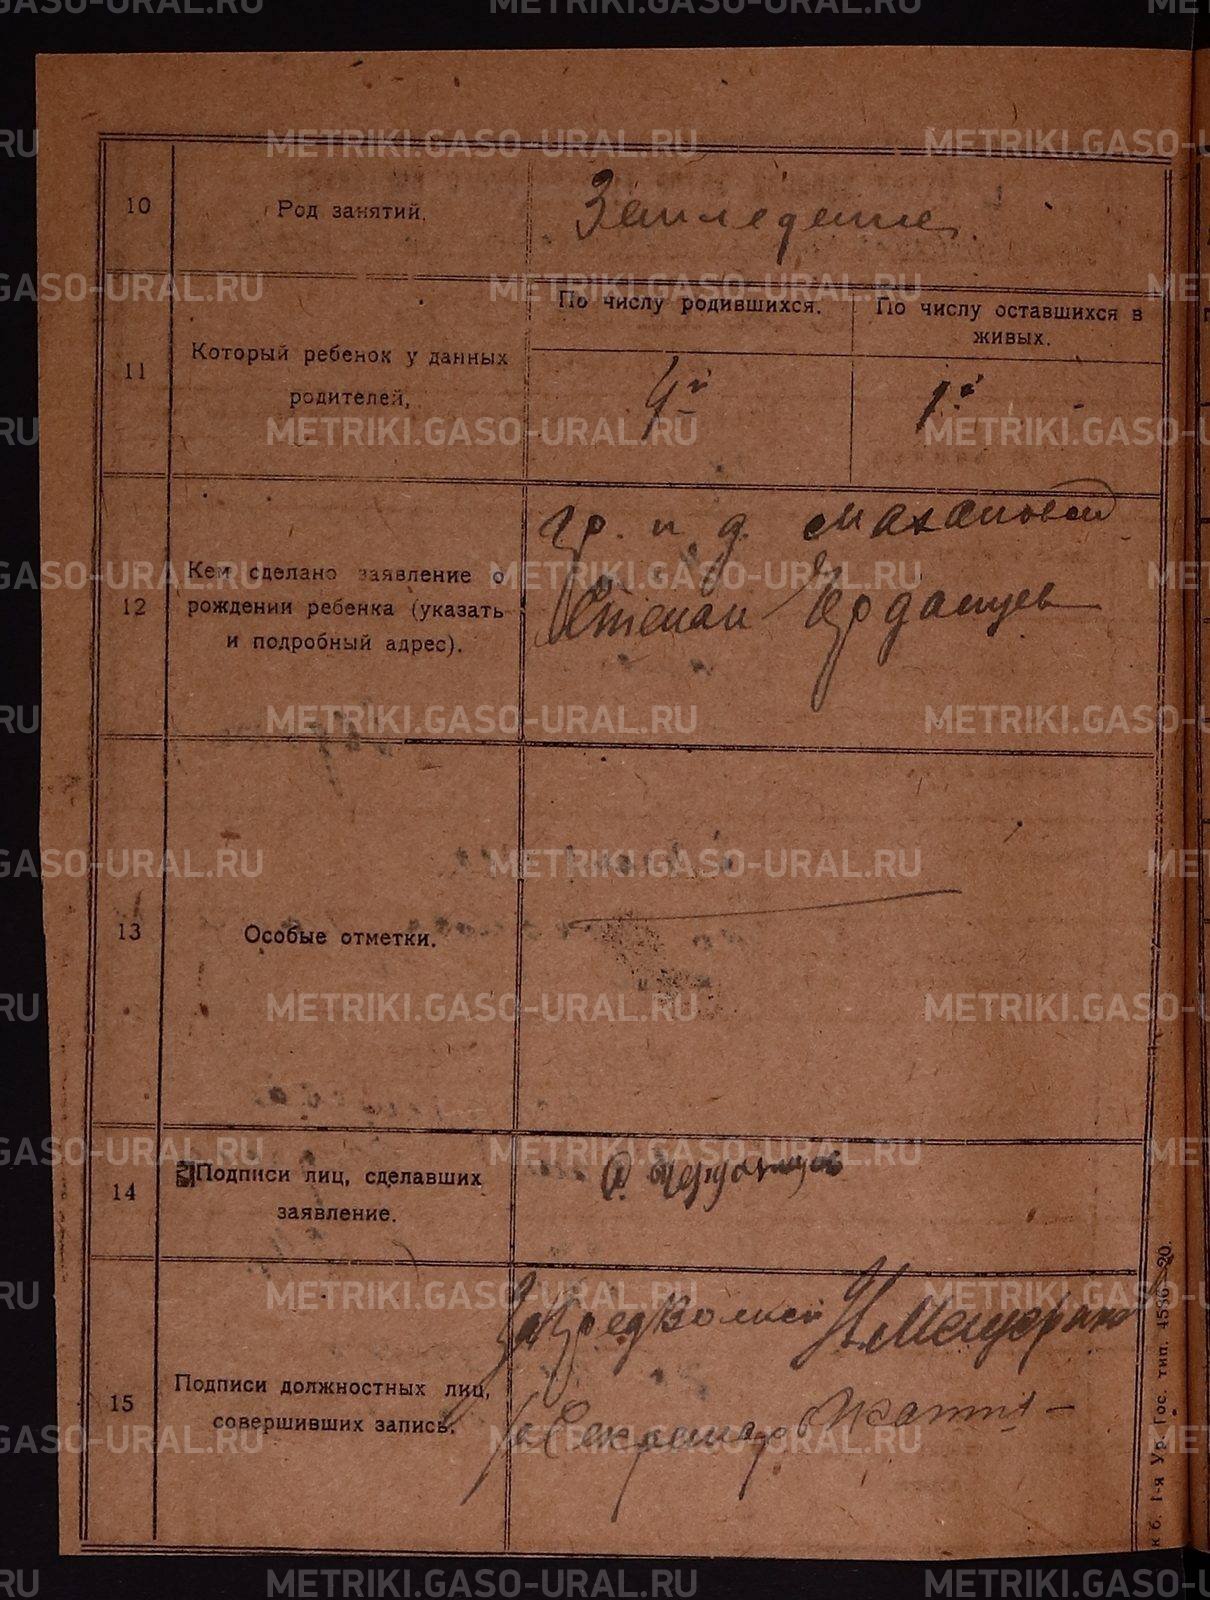 10
Род занятий.
Земледелие.
11
Который ребенок у данных
родителей,
По числу родившихся.
По числу оставшихся в
живых.
4й
1й
12
Кем сделано заявление о
рождении ребенка (указать
и подробный адрес).
гр. п д.
Степан
13
Особые отметки.
14
Подписи лиц, сделавших
заявление.
15
Подписи должностных лиц,
совершивших запись.
Секретарь
к б. 1-я Ур. Гос. тип. 4536-20.
METRIKI.GASO-URAL.RU